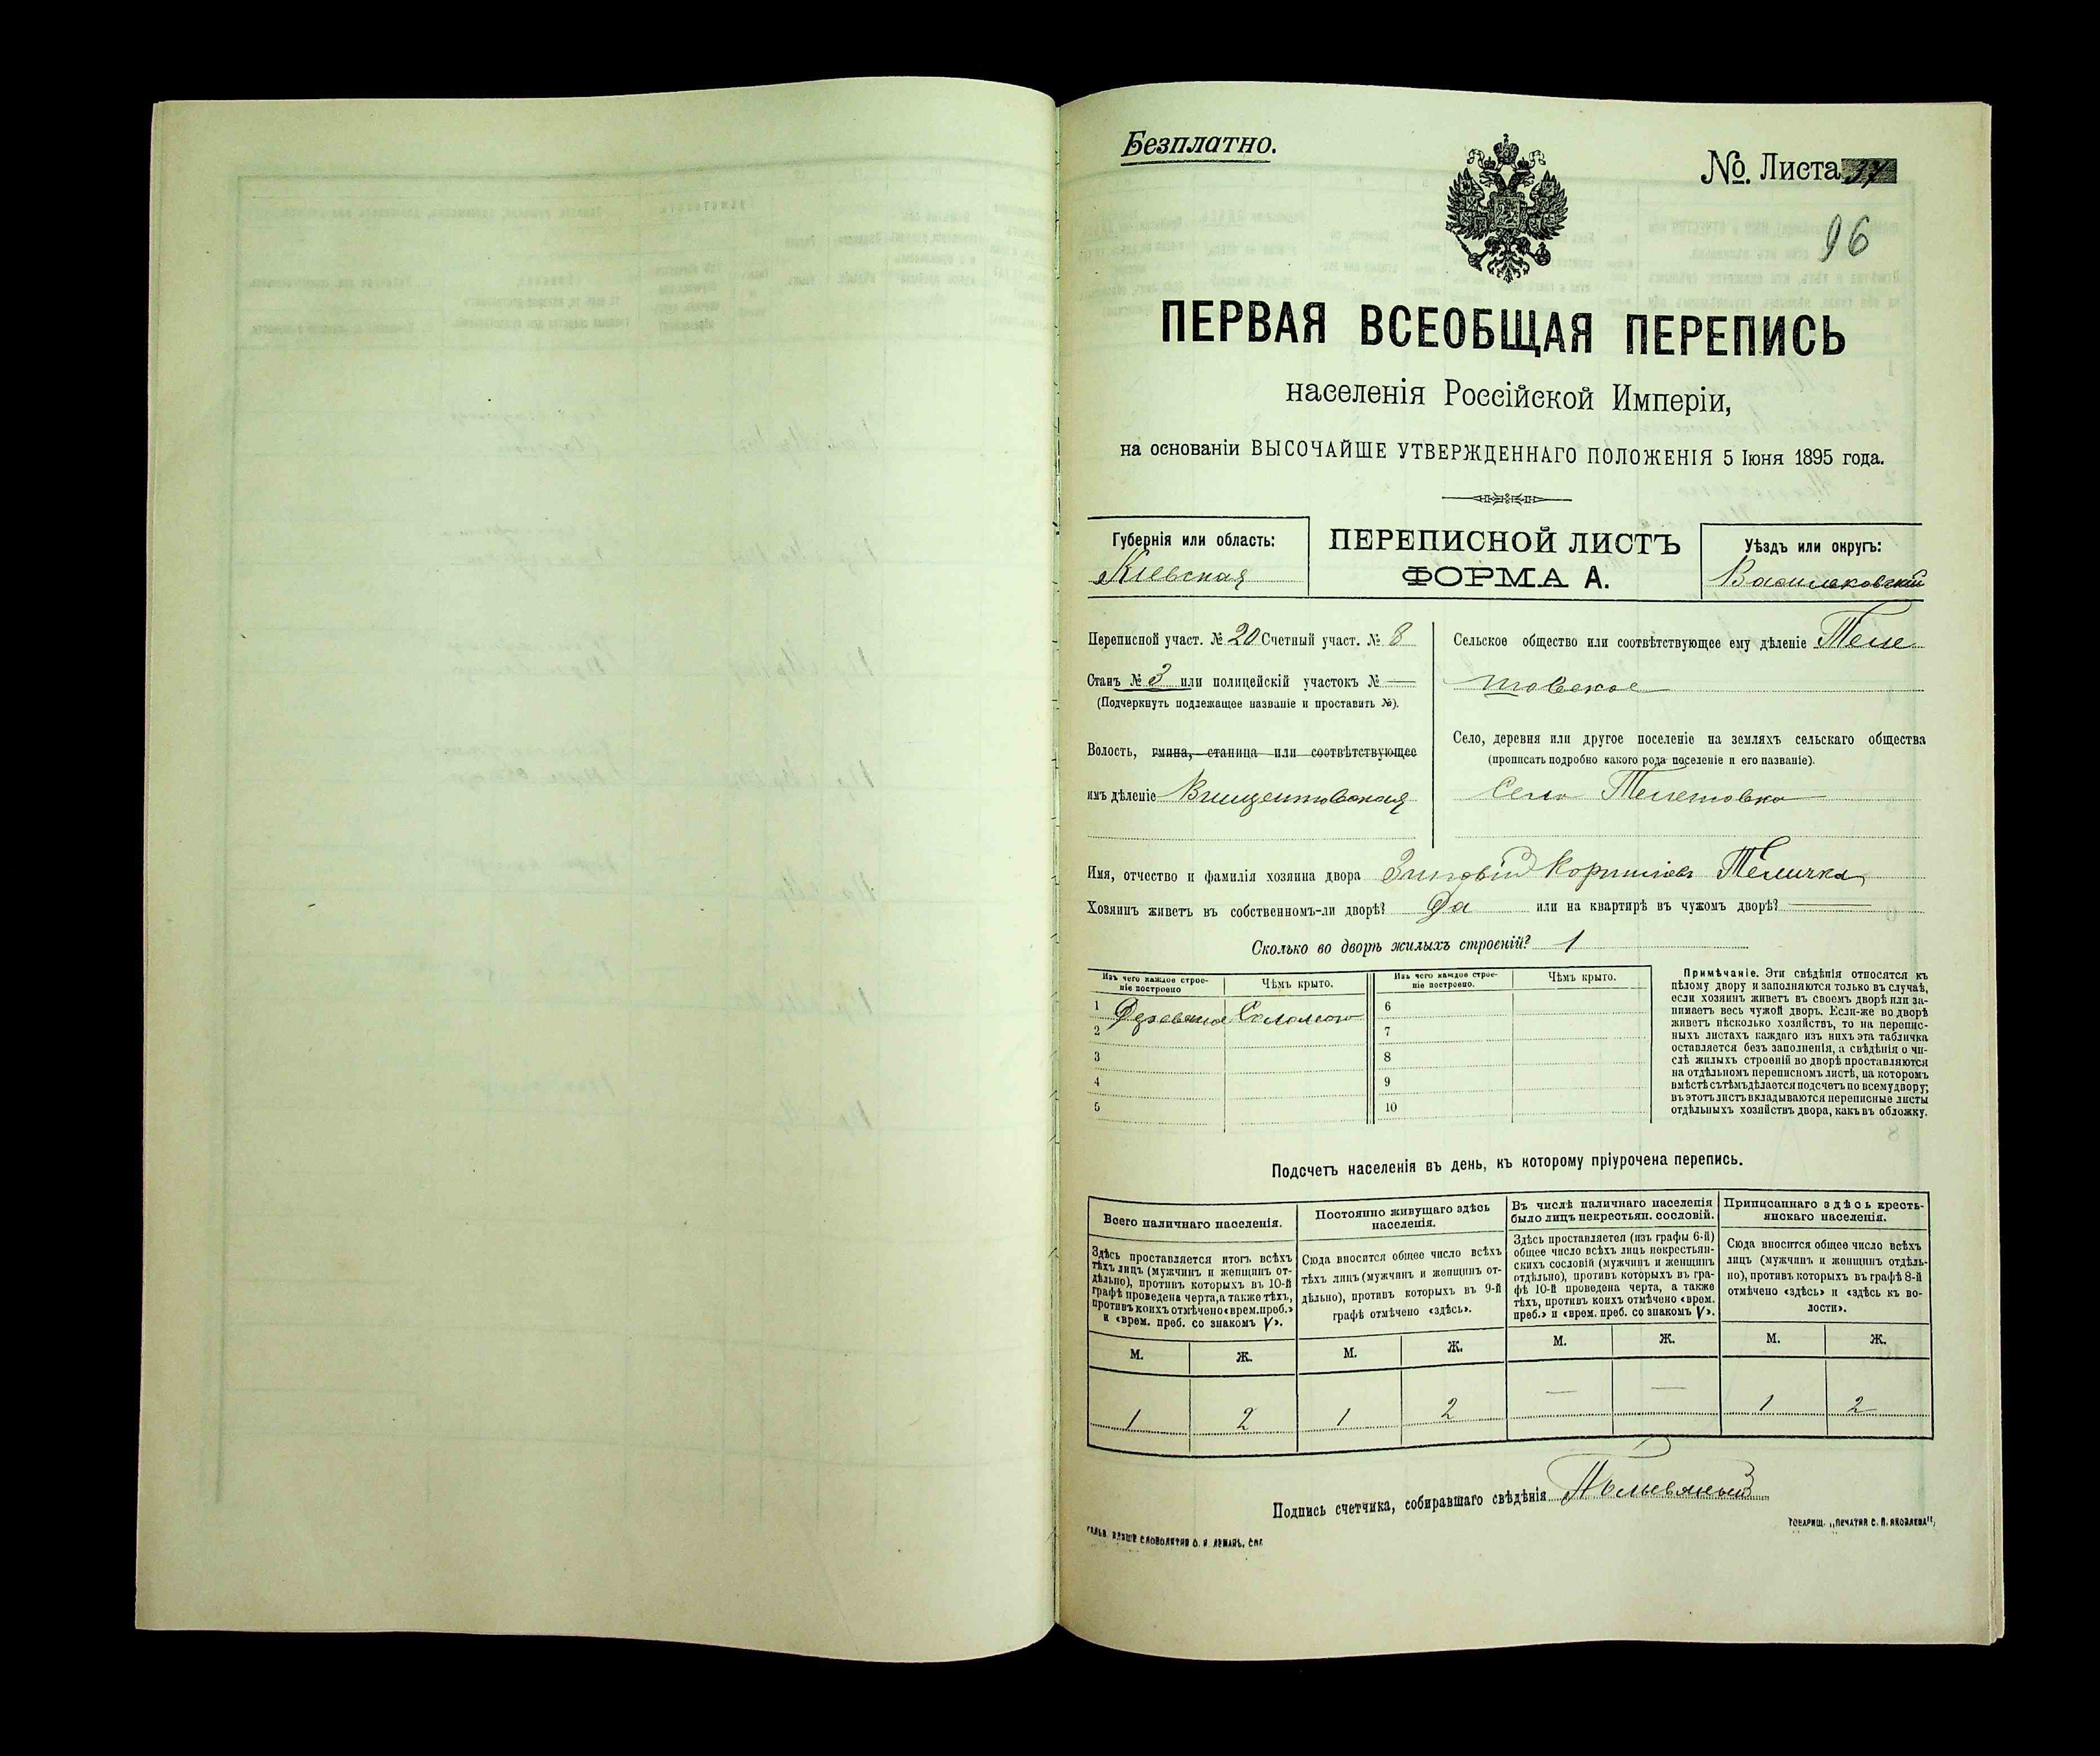 Безплатно.
№ Листа 37
96
ПЕРВАЯ ВСЕОБЩАЯ ПЕРЕПИСЬ
населенія Россійской Имперіи,
на основаніи ВЫСОЧАЙШЕ УТВЕРЖДЕННАГО ПОЛОЖЕНІЯ 5 Іюня 1895 года.
Губернія или область:
Кіевская
ПЕРЕПИСНОЙ ЛИСТЪ
ФОРМА А.
Уѣздъ или округъ:
Васильковскій
Переписной участ. № 20 Счетный участ. № 8
Станъ № 3 или полицейскій участокъ № —
(Подчеркнуть подлежащее названіе и проставить №).
Волость, гмина, станица или соотвѣтствующее
имъ дѣленіе Винцентовская
Сельское общество или соотвѣтствующее ему дѣленіе Теле
шовское
Село, деревня или другое поселеніе на земляхъ сельскаго общества
(прописать подробно какого рода поселеніе и его названіе).
село Телешовка
Имя, отчество и фамилія хозяина двора Зиновій Корнилів Теличка
Хозяинъ живетъ въ собственномъ-ли дворѣ? Да или на квартирѣ въ чужомъ дворѣ? —
Сколько во дворѣ жилыхъ строеній? 1
Изъ чего каждое строе-
ніе построено
Чѣмъ крыто.
Изъ чего каждое строе-
ніе построено.
Чѣмъ крыто.
1 Деревяное Соломою
2
3
4
5
6
7
8
9
10
Примѣчаніе. Эти свѣдѣнія относятся къ
цѣлому двору и заполняются только въ случаѣ,
если хозяинъ живетъ въ своемъ дворѣ или за-
нимаетъ весь чужой дворъ. Если-же во дворѣ
живетъ нѣсколько хозяйствъ, то на перепис-
ныхъ листахъ каждаго изъ нихъ эта табличка
оставляется безъ заполненія, а свѣдѣнія о чи-
слѣ жилыхъ строеній во дворѣ проставляются
на отдѣльномъ переписномъ листѣ, на которомъ
вмѣстѣ съ тѣмъ дѣлается подсчетъ по всему двору;
въ этотъ листъ вкладываются переписные листы
отдѣльныхъ хозяйствъ двора, какъ въ обложку.
Подсчетъ населенія въ день, къ которому пріурочена перепись.
Всего наличнаго населенія.
Здѣсь проставляется итогъ всѣхъ
тѣхъ лицъ (мужчинъ и женщинъ от-
дѣльно), противъ которыхъ въ 10-й
графѣ проведена черта, а также тѣхъ,
противъ коихъ отмѣчено «врем. преб.»
и «врем. преб. со знакомъ V».
Постоянно живущаго здѣсь
населенія.
Сюда вносится общее число всѣхъ
тѣхъ лицъ (мужчинъ и женщинъ от-
дѣльно), противъ которыхъ въ 9-й
графѣ отмѣчено «здѣсь».
Въ числѣ наличнаго населенія
было лицъ некрестьян. сословій.
Здѣсь проставляется (изъ графы 6-й)
общее число всѣхъ лицъ некрестьян-
скихъ сословій (мужчинъ и женщинъ
отдѣльно), противъ которыхъ въ гра-
фѣ 10-й проведена черта, а также
тѣхъ, противъ коихъ отмѣчено «врем.
преб.» и «врем. преб. со знакомъ V».
Приписаннаго здѣсь кресть-
янскаго населенія.
Сюда вносится общее число всѣхъ
лицъ (мужчинъ и женщинъ отдѣль-
но), противъ которыхъ въ графѣ 8-й
отмѣчено «здѣсь» и «здѣсь къ во-
лости».
М. Ж. М. Ж. М. Ж. М. Ж.
1 2 1 2 — — 1 2
Подпись счетчика, собиравшаго свѣдѣнія
СЛОВОЛИТНЯ О. И. ЛЕМАНЪ, СПБ
ТОВАРИЩ. „ПЕЧАТНЯ С. П. ЯКОВЛЕВА"